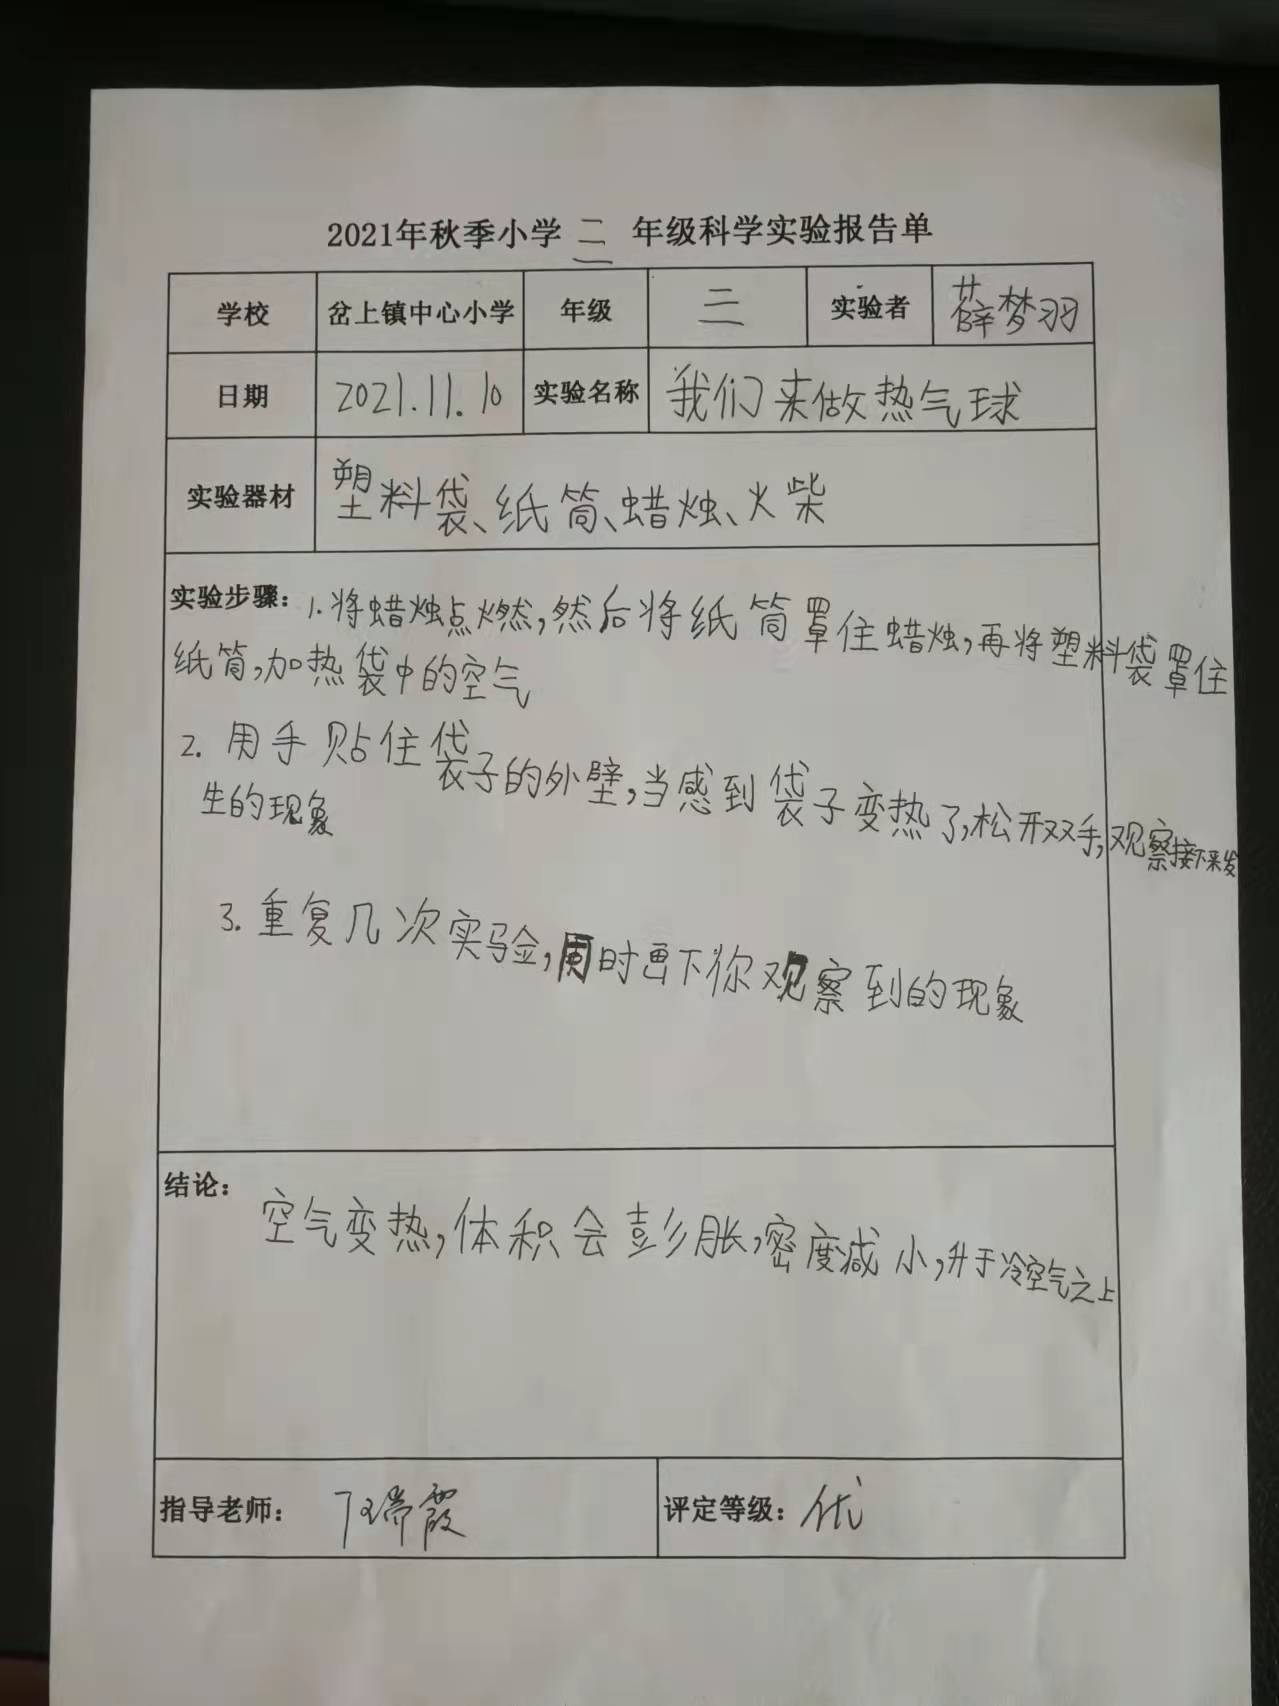 2021年秋季小学 三 年级科学实验报告单
学校 岔上镇中心小学 年级 三 实验者 薛梦羽
日期 2021.11.10 实验名称 我们来做热气球
实验器材 塑料袋、纸筒、蜡烛、火柴
实验步骤: 1.将蜡烛点燃,然后将纸筒罩住蜡烛,再将塑料袋罩住
纸筒,加热袋中的空气
2. 用手贴住袋子的外壁,当感到袋子变热了,松开双手,观察接下来发
生的现象
3.重复几次实验,同时画下你观察到的现象
结论:
空气变热,体积会彭胀,密度减小,升于冷空气之上
指导老师: 丁瑞霞 评定等级: 优